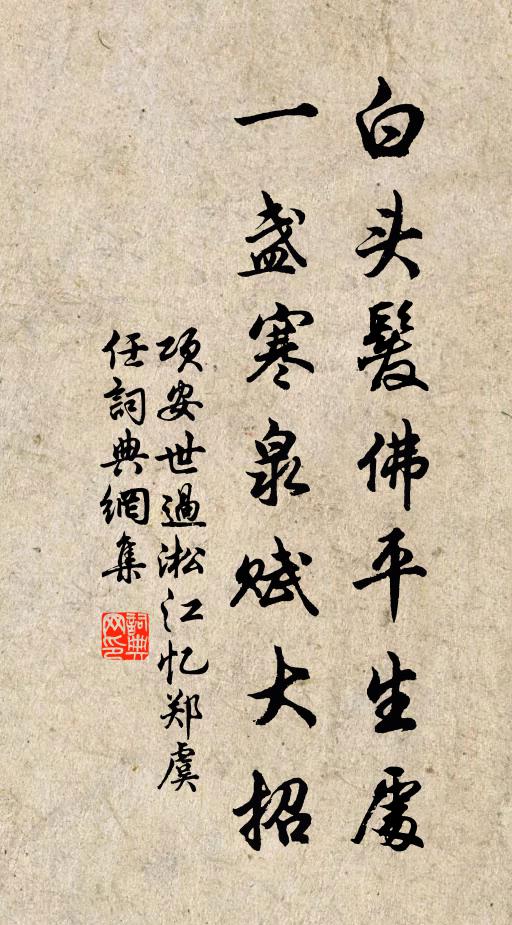 白头髮佛平生處
一盏寒泉赋大招
项安世過淞江忆郑虞
任詞典網集
詞典
网印